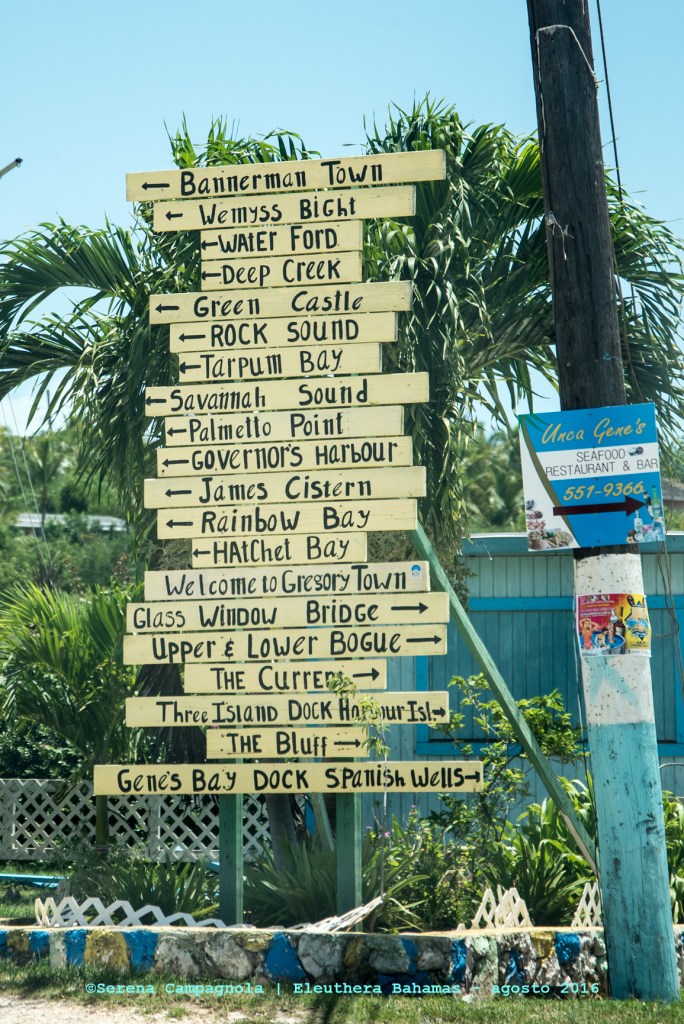 ← Bannerman Town
← Wemyss Bight
← Water Ford
← Deep Creek
← Green Castle
← ROCK SOUND
← Tarpum Bay
← Savannah Sound
← Palmetto Point
← Governor's Harbour
← James Cistern
← Rainbow Bay
← Hatchet Bay
Welcome to Gregory Town
Glass Window Bridge →
Upper & Lower Bogue →
The Current →
Three Island Dock Harbour Isl. →
The Bluff →
Gene's Bay Dock Spanish Wells →
Unca Gene's
SEAFOOD
RESTAURANT & BAR
551-9366
©Serena Campagnola | Eleuthera Bahamas - agosto 2016